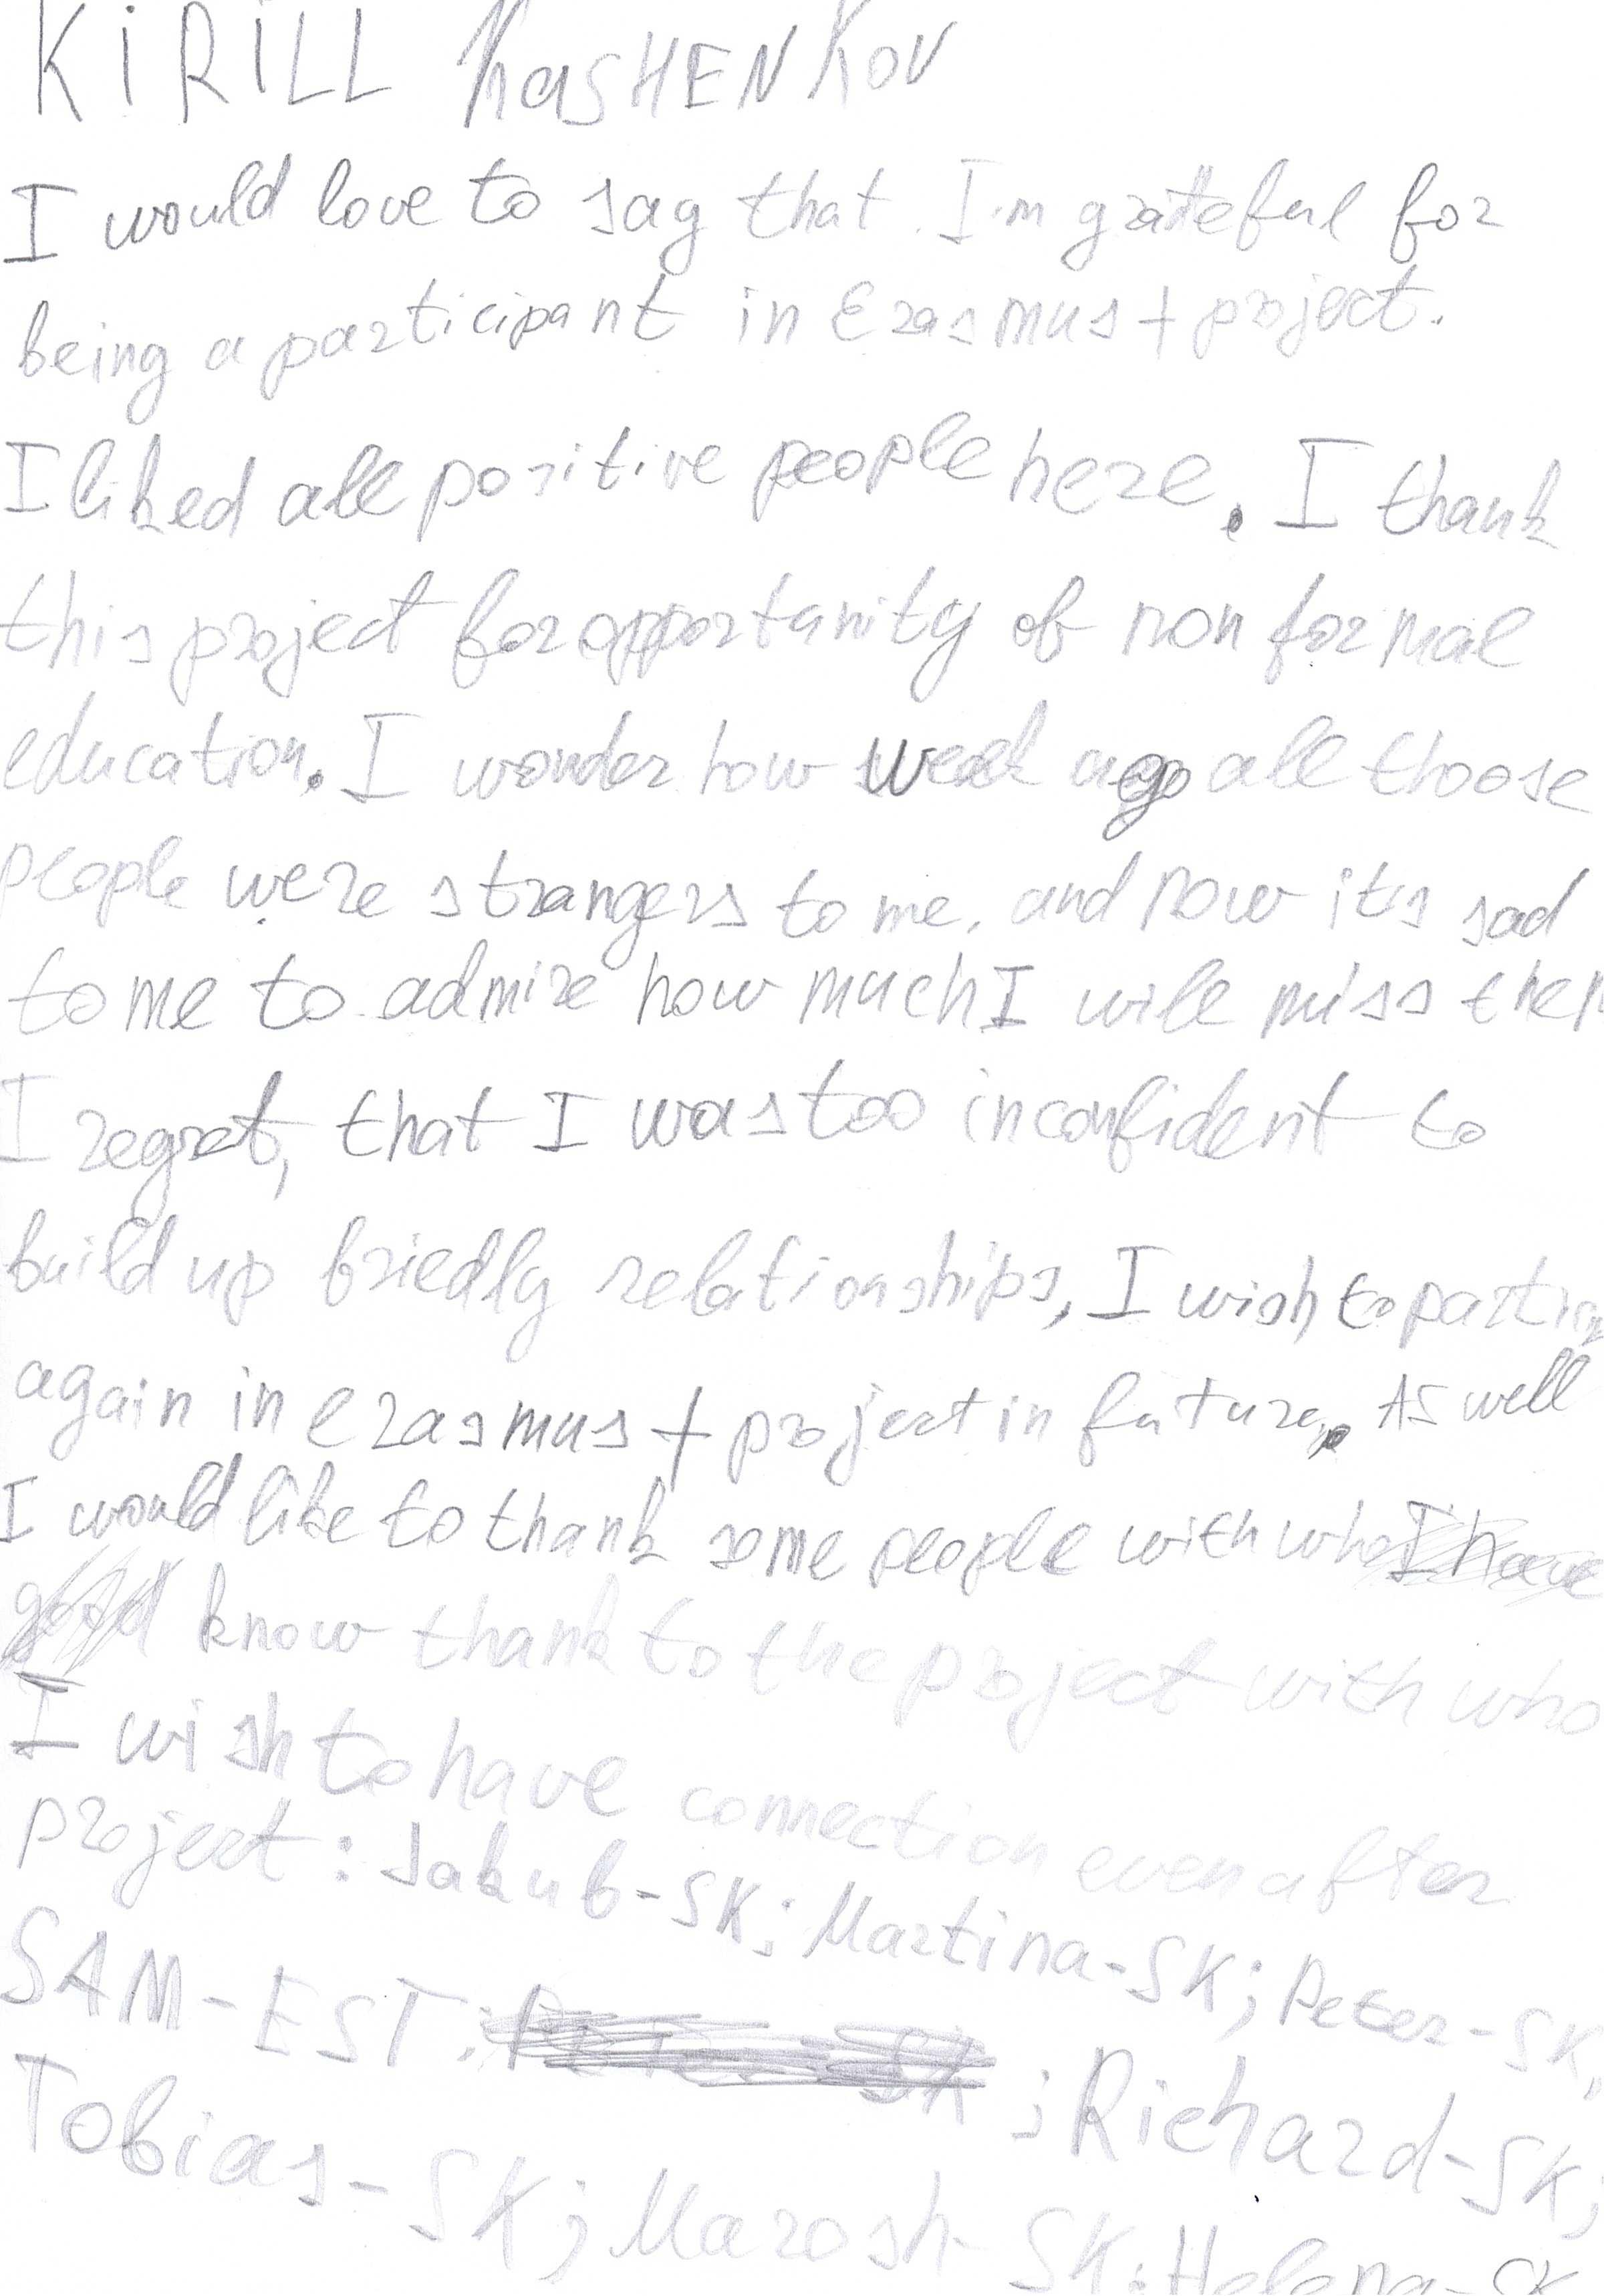 KiRiLL KaSHENKOV
I would love to say that I'm grateful for
being a participant in Erasmus + project.
I liked all positive people here. I thank
this project for opportunity of non formal
education. I wonder how week ago all thoose
people were strangers to me, and now its sad
to me to admire how much I will miss them
I regret, that I was too inconfident to
build up friedly relationships, I wish to partic
again in erasmus + project in future. As well
I would like to thank some people with who I have
good know thank to the project with who
I wish to have connection even after
project: Jakub-SK; Martina-SK; Peter-SK;
SAM-EST; ; Richard-SK;
Tobias-SK; Marosh-SK; Helena-SK